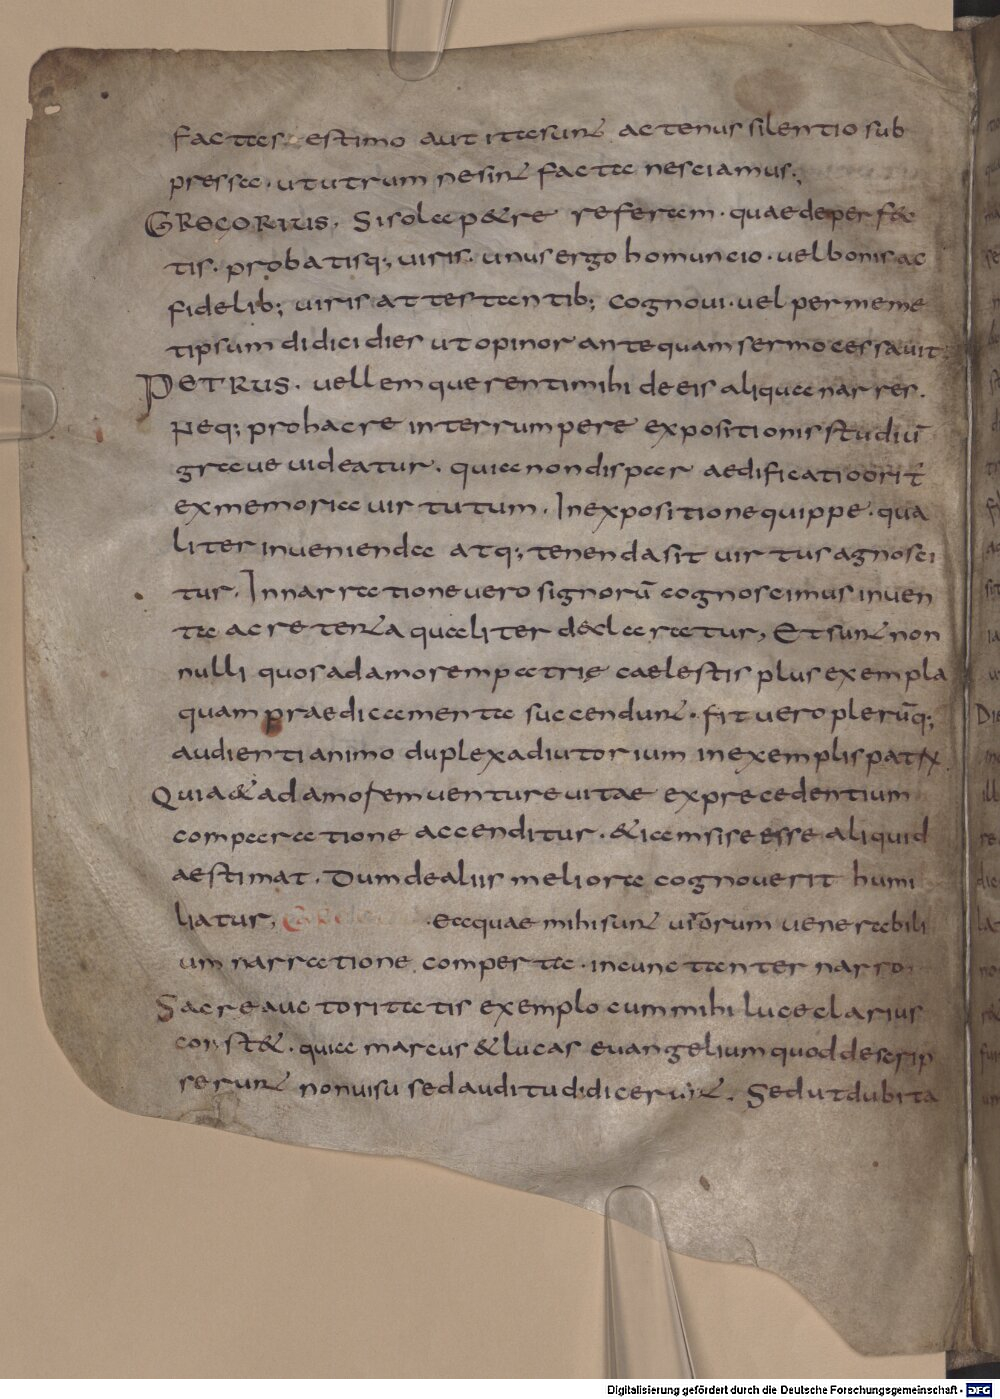 factas estimo aut ita sunt actenus silentio sub
pressa. ut utrum ne sint facta nesciamus;
GREGORIUS. Si sola petre referam. quae de perfec
tis. probatisq; viris. unus ergo homuncio. vel bonis ac
fidelib; viris attestantib; cognovi. vel per meme
tipsum didici dies ut opinor antequam sermo cessavit.
PETRUS. vellem querenti mihi de eis aliqua narres.
Neq; pro hac re interrumpere expositionis studiū
grave videatur. quia non dispar aedificatio orit̄
ex memoria virtutum. In expositione quippe. qua
liter invenienda atq; tenenda sit virtus agnosci
tur. In narratione vero signorū cognoscimus inven
ta ac retenta qualiter declaratur, Et sunt non
nulli quos ad amorem patrię caelestis plus exempla
quam praedicamenta succendunt. fit vero plerūq;
audienti animo duplex adiutorium in exemplis pat
Quia & ad amorem venture vitae ex precedentium
comparatione accenditur. & iam si se esse aliquid
aestimat. Dum de aliis meliora cognoverit humi
liatur, .ea quae mihi sunt virorum venerabili
um narratione comperta. incunctanter narro
Sacre auctoritatis exemplo cum mihi luce clarius
const&. quia marcus & lucas evangelium quod descrip
serunt non visu sed auditu didicerunt. Sed ut dubita
Digitalisierung gefördert durch die Deutsche Forschungsgemeinschaft - DFG